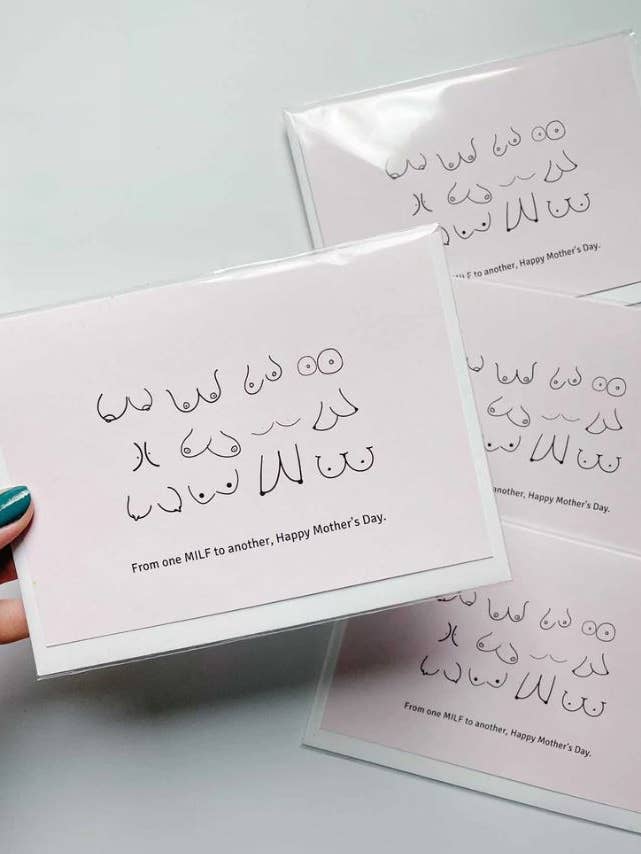 From one MILF to another, Happy Mother's Day.
MILF to another, Happy Mother's Day.
another, Happy Mother's Day.
From one MILF to another, Happy Mother's Day.